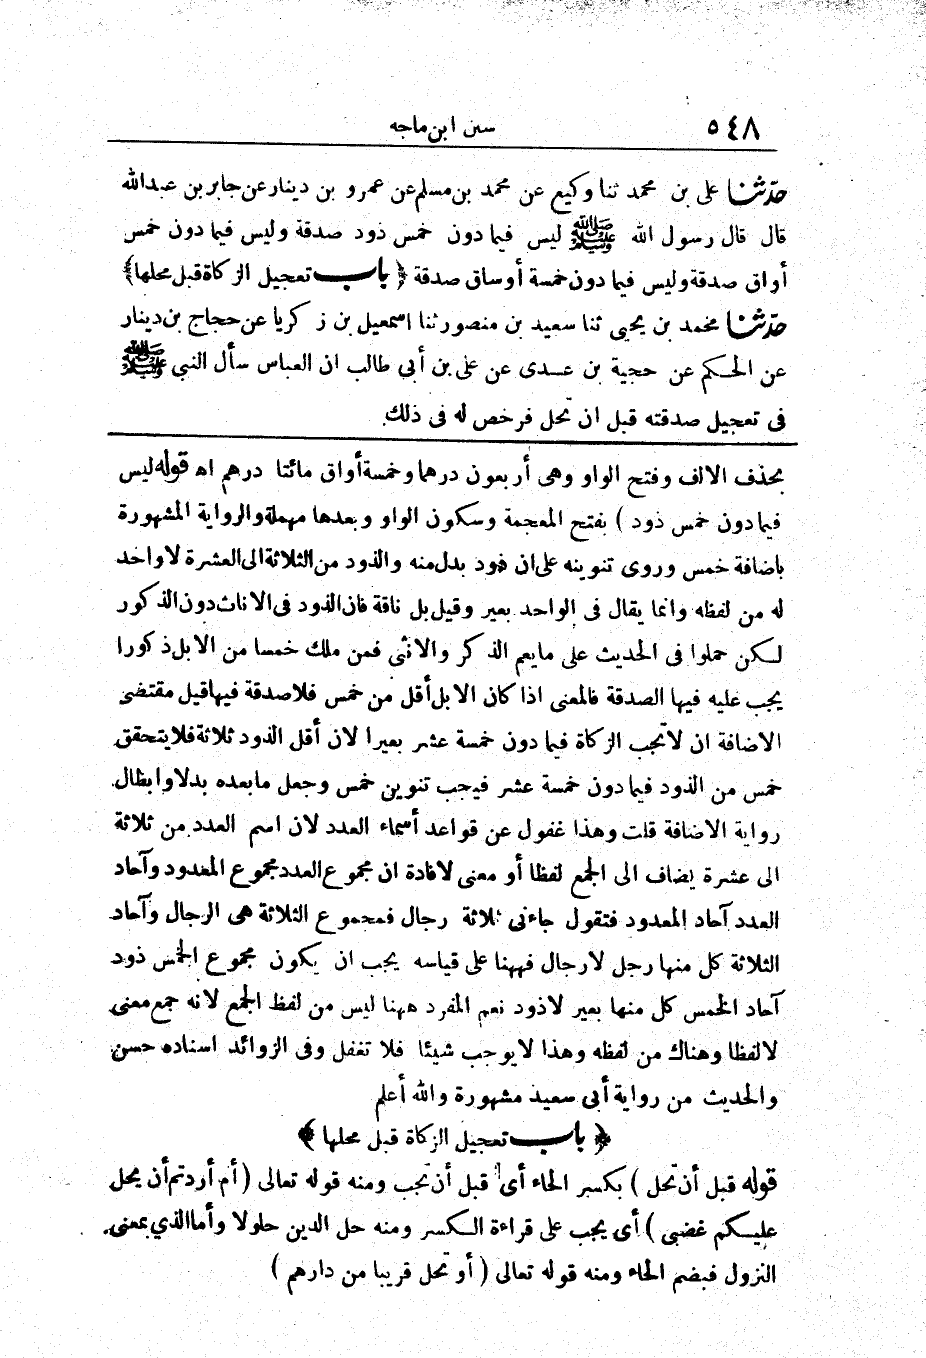 ٥٤٨
سنن ابن ماجه
حدّثنا على بن محمد ثنا وكيع عن محمد بن مسلم عن عمرو بن دينار عن جابر بن عبدالله
قال قال رسول الله ﷺ ليس فيما دون خمس ذود صدقة وليس فيما دون خمس
أواق صدقة وليس فيما دون خمسة أوساق صدقة ﴿ باب تعجيل الزكاة قبل محلها ﴾
حدّثنا محمد بن يحيى ثنا سعيد بن منصور ثنا اسمعيل بن زكريا عن حجاج بن دينار
عن الحكم عن حجية بن عدى عن على بن أبي طالب ان العباس سأل النبي ﷺ
فى تعجيل صدقته قبل ان تحل فرخص له فى ذلك.
بحذف الالف وفتح الواو وهى أربعون درهما وخمسة أواق مائتا درهم اه قوله ليس
فيما دون خمس ذود ) بفتح المعجمة وسكون الواو وبعدها مهملة والرواية المشهورة
باضافة خمس وروى تنوينه على ان ذود بدل منه والذود من الثلاثة الى العشرة لا واحد
له من لفظه وانما يقال فى الواحد بعير وقيل بل ناقة فان الذود فى الاناث دون الذكور
لكن حملوا فى الحديث على مايعم الذكر والانثى فمن ملك خمسا من الابل ذكورا
يجب عليه فيها الصدقة فالمعنى اذا كان الابل أقل من خمس فلا صدقة فيها قيل مقتضى
الاضافة ان لا تجب الزكاة فيما دون خمسة عشر بعيرا لان أقل الذود ثلاثة فلا يتحقق
خمس من الذود فيما دون خمسة عشر فيجب تنوين خمس وجعل مابعده بدلا وابطال
رواية الاضافة قلت وهذا غفول عن قواعد أسماء العدد لان اسم العدد من ثلاثة
الى عشرة يضاف الى الجمع لفظا أو معنى لافادة ان مجموع العدد مجموع المعدود وآحاد
العدد آحاد المعدود فتقول جاءنى ثلاثة رجال فمجموع الثلاثة هى الرجال وآحاد
الثلاثة كل منها رجل لارجال فههنا على قياسه يجب ان يكون مجموع الخمس ذود
آحاد الخمس كل منها بعير لاذود نعم المفرد ههنا ليس من لفظ الجمع لانه جمع معنى
لالفظا وهناك من لفظه وهذا لا يوجب شيئا فلا تغفل وفى الزوائد اسناده حسن
والحديث من رواية أبى سعيد مشهورة والله أعلم
﴿ باب تعجيل الزكاة قبل محلها ﴾
قوله قبل أن تحل ) بكسر الحاء أى قبل أن تجب ومنه قوله تعالى ( أم أردتم أن يحل
عليكم غضبى ) أى يجب على قراءة الكسر ومنه حل الدين حلولا وأما الذي بمعنى
النزول فبضم الحاء ومنه قوله تعالى ( أو تحل قريبا من دارهم )